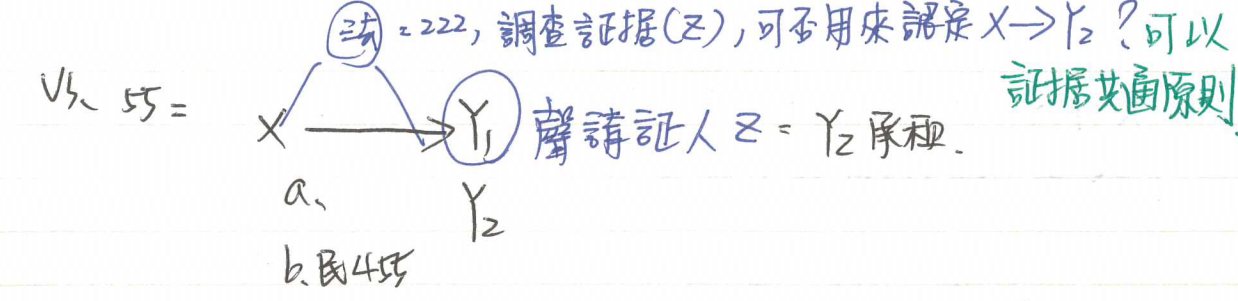 法官=222, 調查証据(Z), 可否用來認定 X→Y₂? 可以
証据共通原則
VS、55= X → Y₁ 聲請証人 Z = Y₂ 承租.
a、 Y₂
b、民455